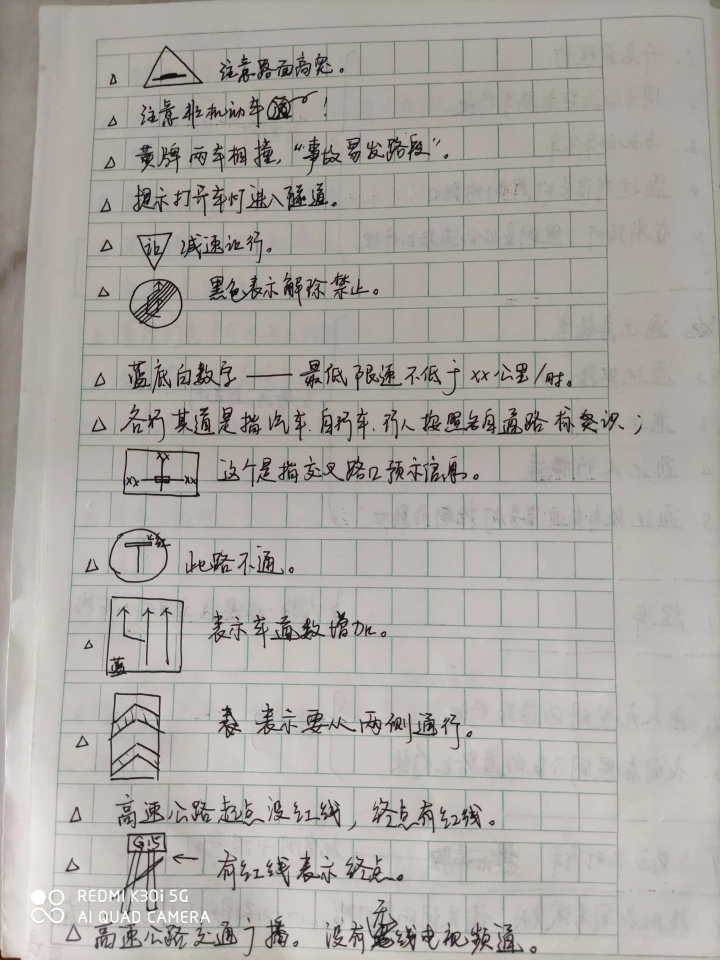 △ 注意路面高突。
△ 注意非机动车通！
△ 黄牌两车相撞，“事故易发路段”。
△ 提示打开车灯进入隧道。
△ 让 减速让行。
△ 黑色表示解除禁止。
△ 蓝底白数字——最低限速不低于xx公里/时。
△ 各行其道是指汽车.自行车.行人按照各自道路标识；
xx xx xx 这个是指交叉路口预示信息。
△ 此路不通。
△ 蓝 表示车道数增加。
△ 表示要从两侧通行。
△ 高速公路起点没红线，终点有红线。
△ G15 ← 有红线表示终点。
△ 高速公路交通广播。没有无线电视频道。
REDMI K30i 5G
AI QUAD CAMERA